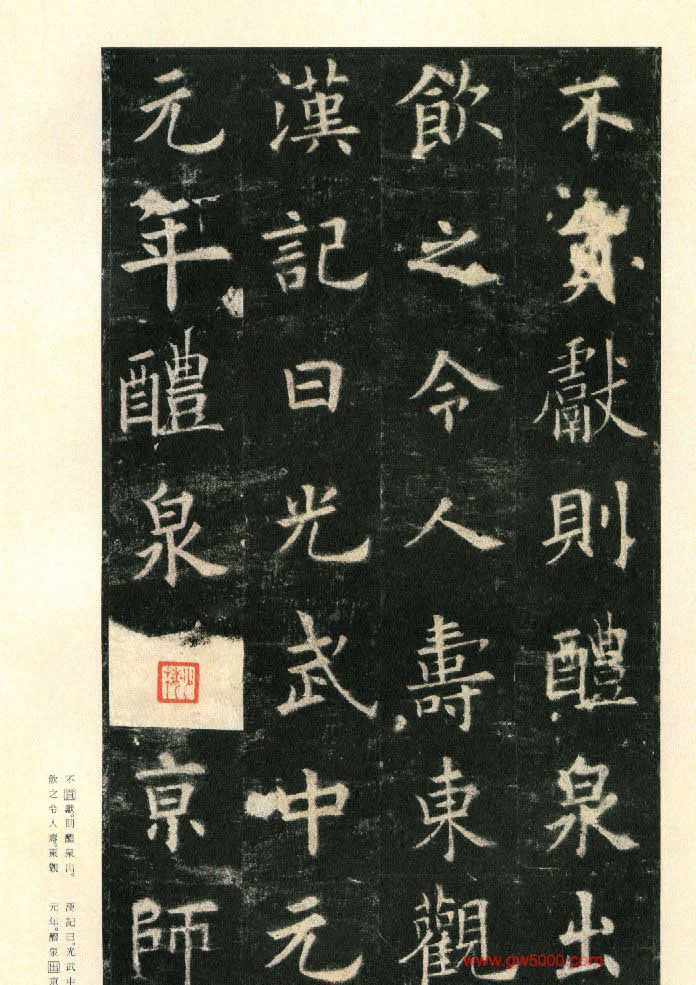 不貢獻則醴泉出
飲之令人壽東觀
漢記曰光武中元
元年醴泉京師
不貢獻。則醴泉出。
飲之令人壽。東觀
漢記曰。光武中
元年。醴泉出京
www.gw5000.com